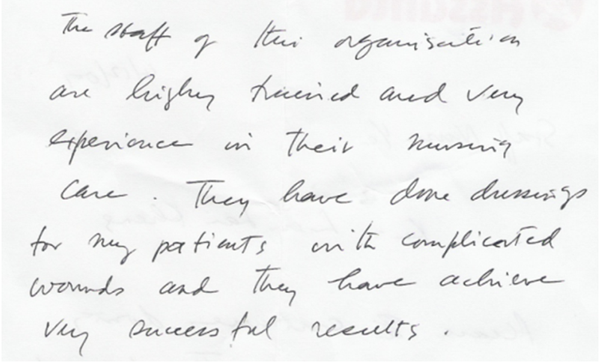 The staff of this organisation
are highly trained and very
experience in their nursing
care. They have done dressings
for my patients with complicated
wounds and they have achieve
very successful results.